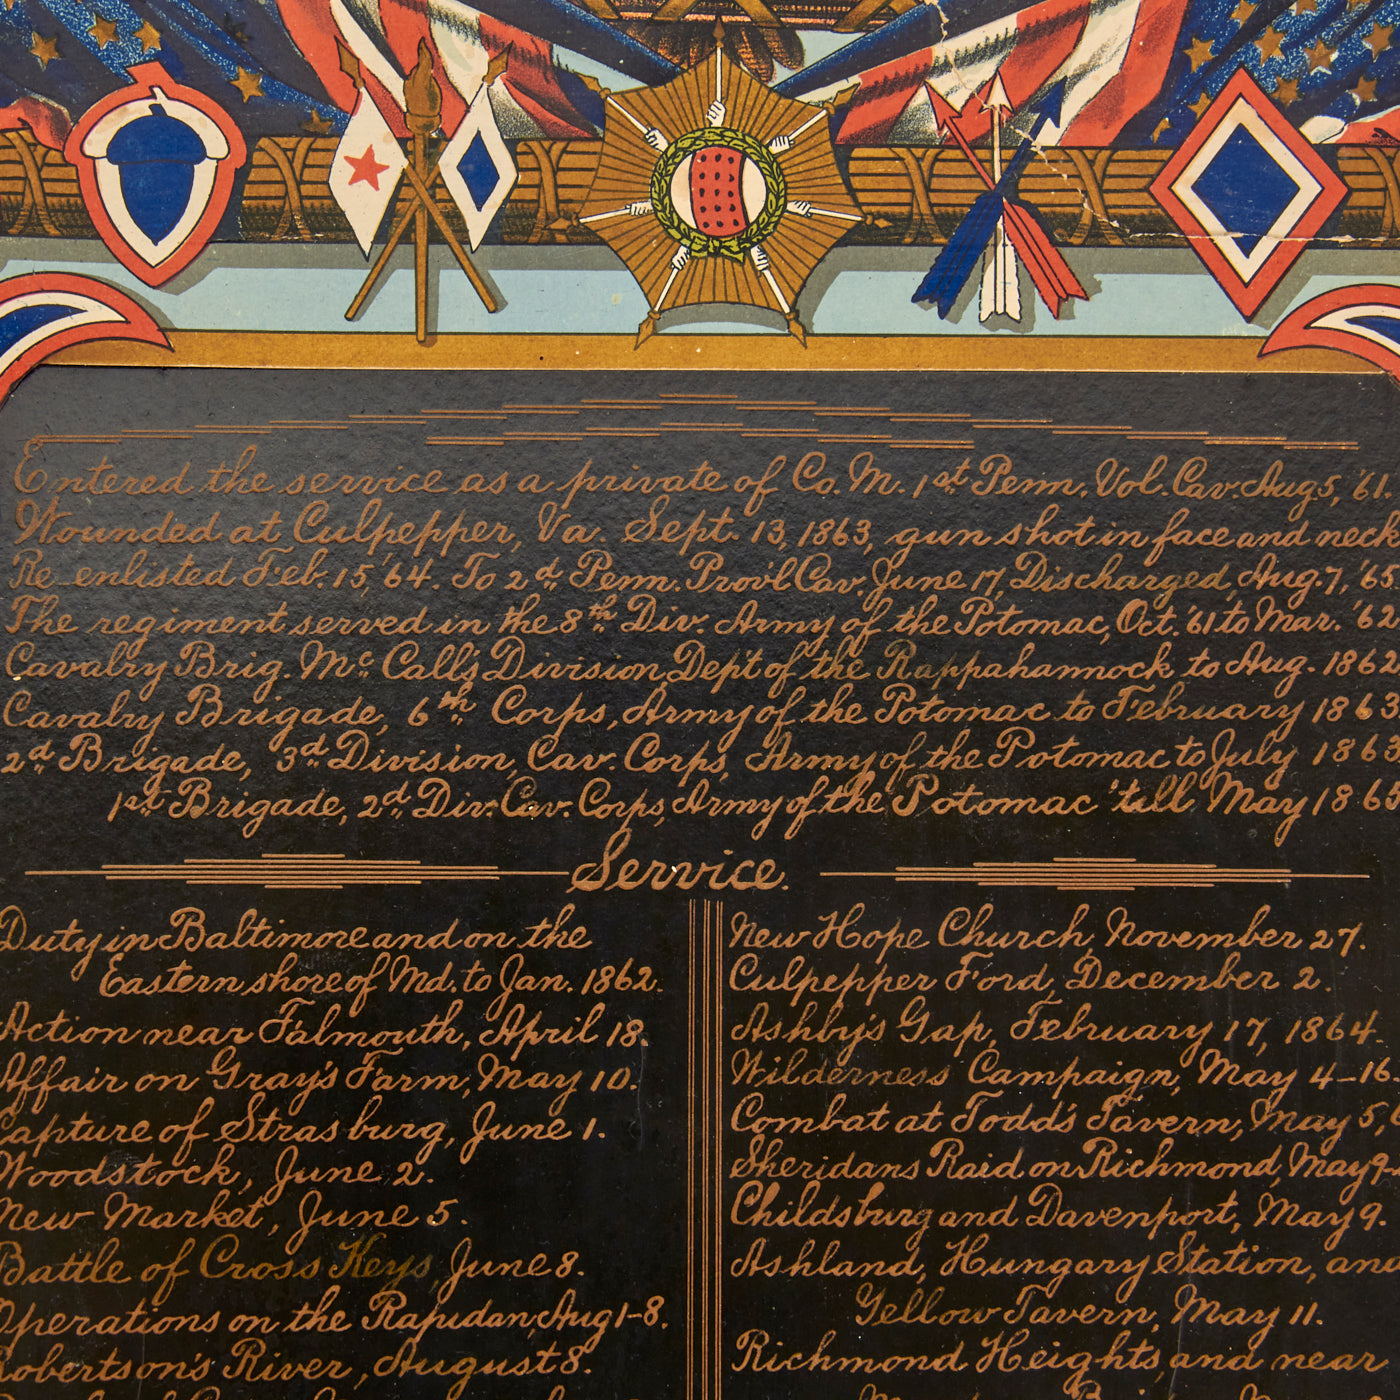 Entered the service as a private of Co. M. 1st Penn. Vol. Cav. Aug 5, '61.
Wounded at Culpepper, Va. Sept. 13, 1863, gun shot in face and neck
Re-enlisted Feb. 15, '64. To 2d Penn. Prov'l Cav. June 17, Discharged, Aug. 7, '65
The regiment served in the 8th Div. Army of the Potomac, Oct. '61 to Mar. '62
Cavalry Brig. Mc Call's Division, Dep't of the Rappahannock to Aug. 1862
Cavalry Brigade, 6th Corps, Army of the Potomac to February 1863
2d Brigade, 3d Division, Cav. Corps, Army of the Potomac to July 1863
1st Brigade, 2d Div. Cav. Corps, Army of the Potomac 'till May 1865
Service.
Duty in Baltimore and on the
Eastern shore of Md. to Jan. 1862.
Action near Falmouth, April 18.
Affair on Gray's Farm, May 10.
Capture of Strasburg, June 1.
Woodstock, June 2.
New Market, June 5.
Battle of Cross Keys, June 8.
Operations on the Rapidan, Aug 1-8.
Robertson's River, August 8.
New Hope Church, November 27.
Culpepper Ford, December 2.
Ashby's Gap, February 17, 1864.
Wilderness Campaign, May 4-16
Combat at Todd's Tavern, May 5,
Sheridans Raid on Richmond, May 9-
Childsburg and Davenport, May 9.
Ashland, Hungary Station, and
Yellow Tavern, May 11.
Richmond Heights and near